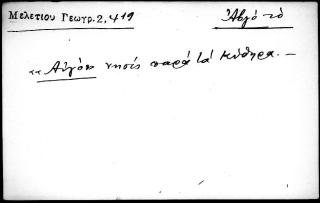 Μελετίου Γεωγρ. 2, 419
Ἀβγὸ τὸ
«Αὐγὸν νησὶς παρὰ τὰ Κύθηρα. —